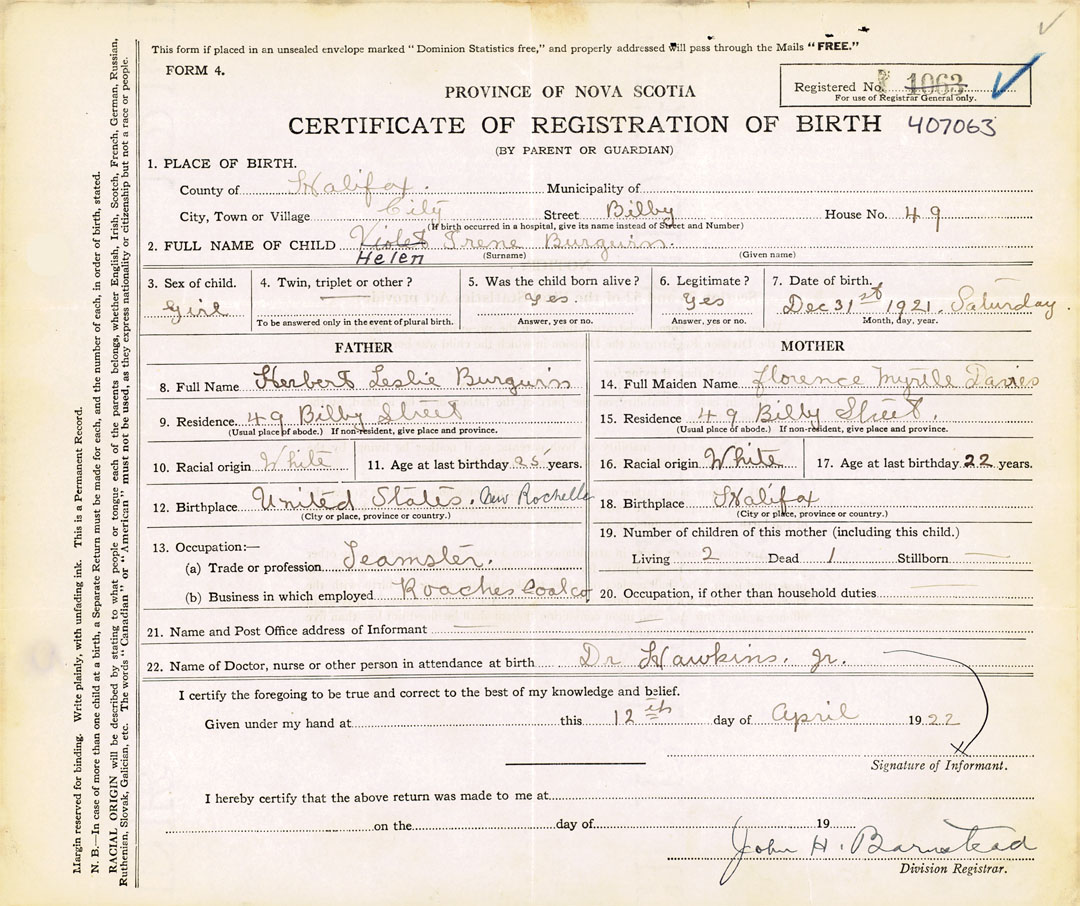 This form if placed in an unsealed envelope marked "Dominion Statistics free," and properly addressed will pass through the Mails "FREE."
FORM 4.
Registered No. 1063
For use of Registrar General only.
PROVINCE OF NOVA SCOTIA
CERTIFICATE OF REGISTRATION OF BIRTH 407063
(BY PARENT OR GUARDIAN)
1. PLACE OF BIRTH.
County of Halifax. Municipality of
City, Town or Village City Street Bilby House No. 49
(If birth occurred in a hospital, give its name instead of Street and Number)
2. FULL NAME OF CHILD Violet Irene Burguin.
Helen (Surname) (Given name)
3. Sex of child. 4. Twin, triplet or other? 5. Was the child born alive? 6. Legitimate? 7. Date of birth.
Girl Yes. Yes Dec 31st 1921. Saturday.
To be answered only in the event of plural birth. Answer, yes or no. Answer, yes or no. Month, day, year.
FATHER
8. Full Name Herbert Leslie Burguin
9. Residence 49 Bilby Street
(Usual place of abode.) If non-resident, give place and province.
10. Racial origin White 11. Age at last birthday 25 years.
12. Birthplace United States. New Rochelle
(City or place, province or country.)
13. Occupation:—
(a) Trade or profession Teamster.
(b) Business in which employed Roaches Coal co
MOTHER
14. Full Maiden Name Florence Myrtle Davies
15. Residence 49 Bilby Street.
(Usual place of abode.) If non-resident, give place and province.
16. Racial origin White 17. Age at last birthday 22 years.
18. Birthplace Halifax
(City or place, province or country.)
19. Number of children of this mother (including this child.)
Living 2 Dead 1 Stillborn —
20. Occupation, if other than household duties
21. Name and Post Office address of Informant
22. Name of Doctor, nurse or other person in attendance at birth Dr Hawkins. Jr.
I certify the foregoing to be true and correct to the best of my knowledge and belief.
Given under my hand at this 12th day of April 1922
X
Signature of Informant.
I hereby certify that the above return was made to me at
on the day of 19
John H. Barnstead
Division Registrar.
Margin reserved for binding. Write plainly, with unfading ink. This is a Permanent Record.
N. B.—In case of more than one child at a birth, a Separate Return must be made for each, and the number of each, in order of birth, stated.
RACIAL ORIGIN will be described by stating to what people or tongue each of the parents belongs, whether English, Irish, Scotch, French, German, Russian,
Ruthenian, Slovak, Galician, etc. The words "Canadian" or "American" must not be used, as they express nationality or citizenship but not a race or people.